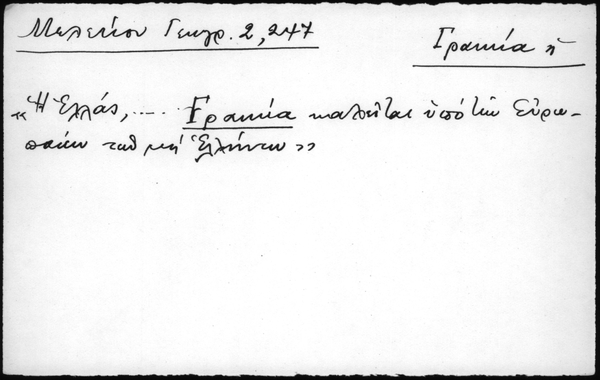 Μελετίου Γεωγρ. 2, 247
Γραικία ἡ
«Ἡ Ἑλλάς, .... Γραικία καλεῖται ὑπὸ τῶν Εὐρω-
παίων καὶ μὴ Ἑλλήνων»